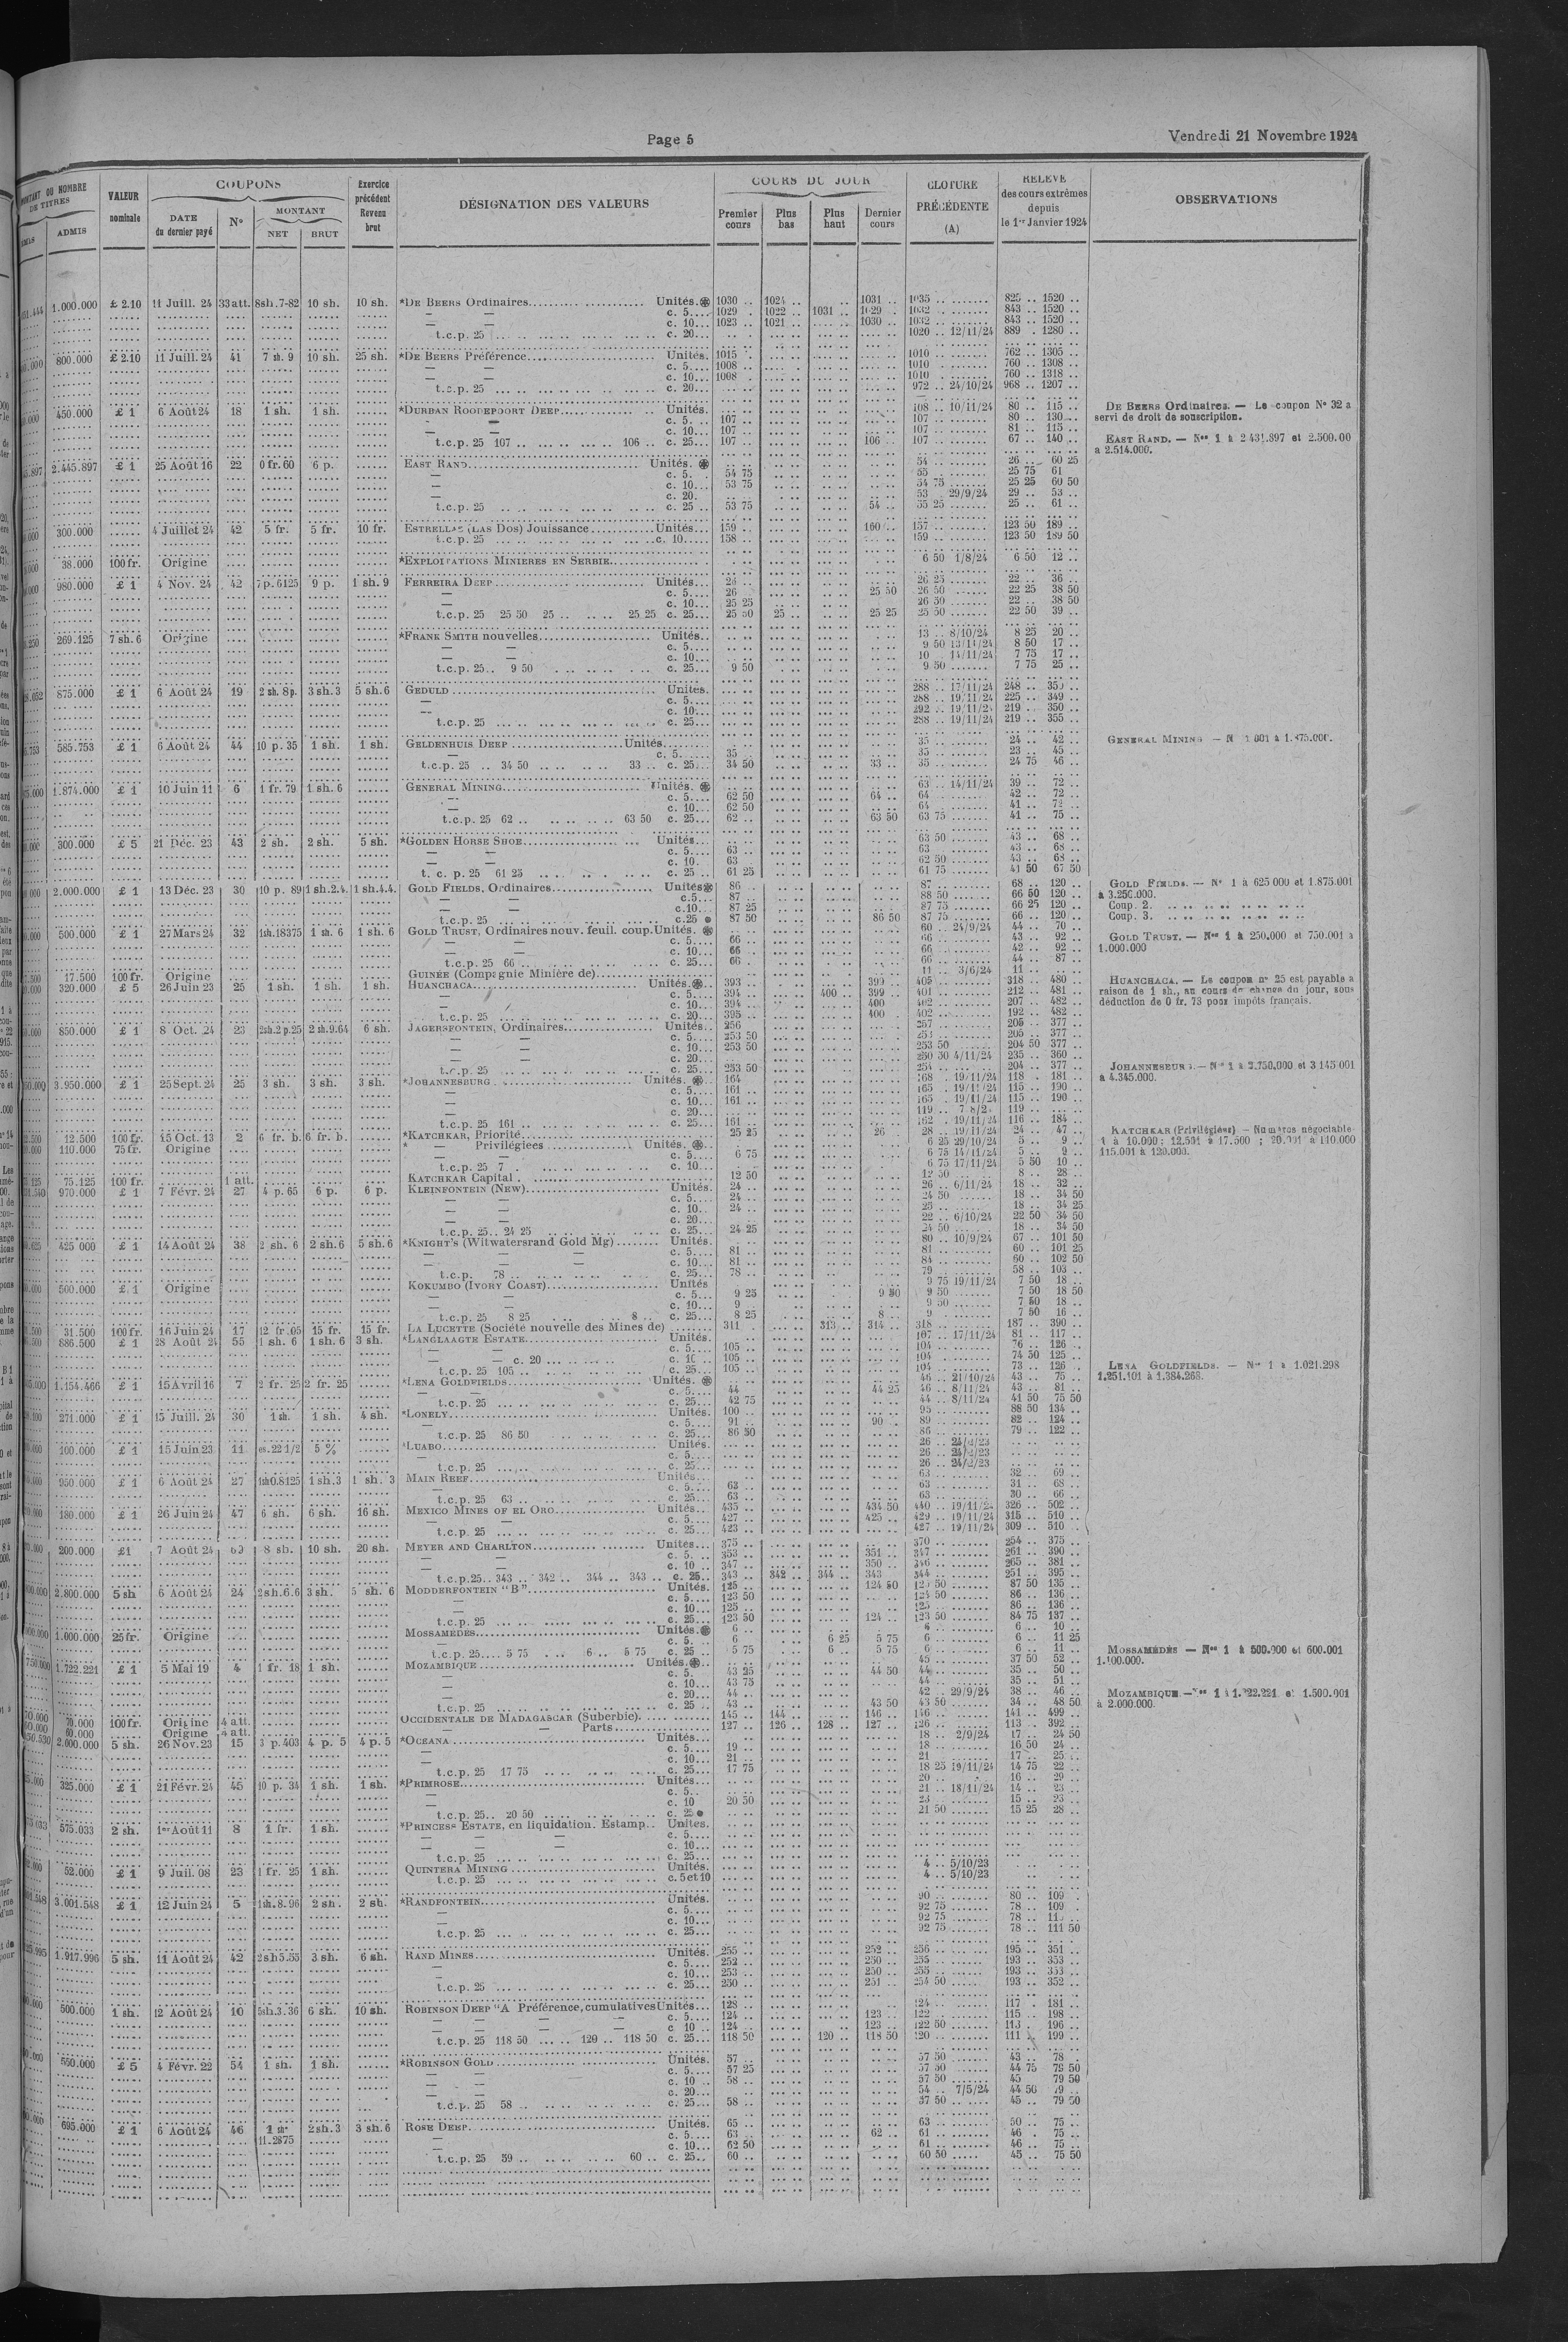 Page 5
Vendredi 21 Novembre 1924
DE TITRES
ADMIS
VALEUR
nominale
COUPONS
DATE
du dernier payé
N°
MONTANT
NET
BRUT
Exercice
précédent
Revenu
brut
DÉSIGNATION DES VALEURS
COURS DU JOUR
Premier
cours
Plus
bas
Plus
haut
Dernier
cours
CLOTURE
PRÉCÉDENTE
(A)
RELEVÉ
des cours extrêmes
depuis
le 1er Janvier 1924
OBSERVATIONS
1.000.000 £ 2.10 11 Juill. 24 33att. 8sh.7-82 10 sh. 10 sh. *DE BEERS Ordinaires Unités. 1030 .. 1024 .. 1031 .. 1035 .. 825 .. 1520 ..
— — c. 5 1029 1022 .. 1031 .. 1029 1032 .. 843 .. 1520 ..
— — c. 10 1023 .. 1021 .. 1030 .. 1032 .. 843 .. 1520 ..
t.c.p. 25 c. 20 1020 .. 12/11/24 889 . 1280 ..
800.000 £ 2.10 11 Juill. 24 41 7 sh. 9 10 sh. 25 sh. *DE BEERS Préférence Unités. 1015 1010 762 .. 1305 ..
— — c. 5 1008 .. 1010 760 .. 1308 ..
— — c. 10 1008 . 1010 760 .. 1318 ..
t.c.p. 25 c. 20 972 .. 24/10/24 968 .. 1207 ..
450.000 £ 1 6 Août 24 18 1 sh. 1 sh. *DURBAN ROODEPOORT DEEP Unités. 108 .. 10/11/24 80 .. 115 ..
— — c. 5 107 .. 107 80 .. 130 ..
— — c. 10 107 .. 107 81 .. 115 ..
t.c.p. 25 107 .. 106 .. c. 25 107 .. 106 .. 107 67 .. 140 ..
DE BEERS Ordinaires. — Le coupon N° 32 a
servi de droit de souscription.
EAST RAND. — Nos 1 à 2 431.897 et 2.500.00
a 2.514.000.
2.445.897 £ 1 25 Août 16 22 0 fr. 60 6 p. EAST RAND Unités. 54 .. 26 .. 60 25
— c. 5 54 75 55 25 75 61
— c. 10 53 75 54 75 25 25 60 50
— c. 20. 53 29/9/24 29 .. 53 ..
t.c.p. 25 c. 25 53 75 54 .. 55 25 25 .. 61 ..
300.000 4 Juillet 24 42 5 fr. 5 fr. 10 fr. ESTRELLAS (LAS DOS) Jouissance Unités 159 .. 160 .. 157 123 50 189 ..
t.c.p. 25 c. 10 158 .. 159 123 50 189 50
38.000 100 fr. Origine *EXPLOITATIONS MINIERES EN SERBIE 6 50 1/8/24 6 50 12 ..
980.000 £ 1 4 Nov. 24 42 7p.6125 9 p. 1 sh. 9 FERREIRA DEEP Unités 26 25 22 .. 36 ..
— c. 5 26 25 50 26 50 22 25 38 50
— c. 10 25 25 26 50 22 .. 38 50
t.c.p. 25 25 50 25 .. 25 25 c. 25 25 50 25 .. 25 25 25 50 22 50 39 ..
269.125 7 sh. 6 Origine *FRANK SMITH nouvelles Unités 13 .. 8/10/24 8 25 20 ..
— — c. 5 9 50 13/11/24 8 50 17 ..
— — c. 10 10 14/11/24 7 75 17 ..
t.c.p. 25 .. 9 50 c. 25 9 50 9 50 7 75 25 ..
875.000 £ 1 6 Août 24 19 2 sh. 8p. 3 sh. 3 5 sh.6 GEDULD Unités. 288 .. 17/11/24 248 .. 350 ..
— c. 5 288 .. 19/11/24 225 .. 349 ..
— c. 10 292 .. 19/11/24 219 .. 350 ..
t.c.p. 25 c. 25 288 .. 19/11/24 219 .. 355 ..
585.753 £ 1 6 Août 24 44 10 p. 35 1 sh. 1 sh. GELDENHUIS DEEP Unités 35 24 .. 42 ..
— c. 5 35 .. 35 23 .. 45 ..
t.c.p. 25 .. 34 50 33 .. c. 25 34 50 33 .. 35 24 75 46 ..
1.874.000 £ 1 10 Juin 11 6 1 fr. 79 1 sh. 6 GENERAL MINING Unités. 63 14/11/24 39 .. 72 ..
— c. 5 62 50 64 .. 64 42 .. 72 ..
— c. 10 62 50 64 41 .. 72 ..
t.c.p. 25 62 .. 63 50 c. 25 62 .. 63 50 63 75 41 .. 75 ..
300.000 £ 5 21 Déc. 23 43 2 sh. 2 sh. 5 sh. *GOLDEN HORSE SHOE Unités 63 50 43 .. 68 ..
— — c. 5 63 .. 63 43 .. 68 ..
— — c. 10 63 62 50 43 .. 68 ..
t. c. p. 25 61 25 c. 25 61 25 61 75 41 50 67 50
2.000.000 £ 1 13 Déc. 23 30 10 p. 89 1 sh.2.4. 1 sh.4.4. GOLD FIELDS, Ordinaires Unités 86 .. 87 .. 68 .. 120 ..
— — c.5 87 .. 88 50 66 50 120 ..
— — c.10 87 25 87 75 66 25 120 ..
t.c.p. 25 c.25 87 50 86 50 87 75 66 .. 120 ..
GOLD FIELDS. — N° 1 à 625 000 et 1.875.001
à 3.250.000.
Coup. 2.
Coup. 3.
500.000 £ 1 27 Mars 24 32 1sh.18375 1 sh. 6 1 sh. 6 GOLD TRUST, Ordinaires nouv. feuil. coup. Unités. 60 .. 24/9/24 44 .. 70 ..
— — c. 5 66 .. 66 43 .. 92 ..
— — c. 10 66 .. 66 42 .. 92 ..
t.c.p. 25 66 c. 25 66 .. 66 44 .. 87 ..
GOLD TRUST. — Nos 1 à 250.000 et 750.001 à
1.000.000
17.500 100 fr. Origine GUINÉE (Compagnie Minière de) 11 .. 3/6/24 11 ..
320.000 £ 5 26 Juin 23 25 1 sh. 1 sh. 1 sh. HUANCHACA Unités. 393 .. 399 .. 405 318 .. 480 ..
— c. 5 394 .. 400 .. 399 .. 401 212 .. 481 ..
— c. 10 394 .. 400 402 207 .. 482 ..
t.c.p. 25 c. 20 395 .. 400 402 192 .. 482 ..
HUANCHACA. — Le coupon n° 25 est payable a
raison de 1 sh., au cours de change du jour, sous
déduction de 0 fr. 73 pour impôts français.
850.000 £ 1 8 Oct. 24 23 2sh.2p.25 2 sh.9.64 6 sh. JAGERSFONTEIN, Ordinaires Unités 256 257 205 .. 377 ..
— — c. 5 253 50 205 .. 377 ..
— — c. 10 253 50 253 50 204 50 377 ..
— — c. 20 260 50 4/11/24 235 .. 360 ..
t.c.p. 25 c. 25 253 50 254 204 .. 377 ..
3.950.000 £ 1 25 Sept. 24 25 3 sh. 3 sh. 3 sh. *JOHANNESBURG Unités. 164 168 . 19/11/24 118 .. 181 ..
— c. 5 161 165 . 19/11/24 115 .. 190 ..
— c. 10 161 165 . 19/11/24 115 .. 190 ..
— c. 20 119 119 ..
t.c.p. 25 161 .. c. 25 161 162 . 19/11/24 116 .. 184 ..
12.500 100 fr. 15 Oct. 13 2 6 fr. b. 6 fr. b. *KATCHKAR, Priorité 25 25 26 28 .. 19/11/24 24 .. 47 ..
110.000 75 fr. Origine * Privilégiees Unités. 6 25 29/10/24 5 .. 9 ..
— c. 5 6 75 6 75 14/11/24 5 .. 9 ..
t.c.p. 25 7 c. 10 6 75 17/11/24 5 50 10 ..
KATCHKAR (Privilégiées) — Numéros négociable
1 à 10.000 ; 12.501 à 17.500 ; 20.001 à 110.000
115.001 à 120.000.
75.125 100 fr. 1 att. KATCHKAR Capital 12 50 12 50 8 .. 28 ..
970.000 £ 1 7 Févr. 24 27 4 p. 65 6 p. 6 p. KLEINFONTEIN (NEW) Unités. 24 .. 26 .. 6/11/24 18 .. 32 ..
— — c. 5 24 .. 24 50 18 .. 34 50
— — c. 10 24 .. 25 18 .. 34 25
— — c. 20 22 .. 6/10/24 22 50 34 50
t.c.p. 25 .. 24 25 c. 25 24 25 24 50 18 .. 34 50
425 000 £ 1 14 Août 24 38 2 sh. 6 2 sh.6 5 sh.6 *KNIGHT'S (Witwatersrand Gold Mg) Unités. 80 .. 10/9/24 67 .. 101 50
— c. 5 81 .. 81 60 .. 101 25
— c. 10 81 .. 84 60 .. 102 50
t.c.p. 78 .. c. 25 78 .. 79 58 .. 103 ..
500.000 £ 1 Origine KOKUMBO (IVORY COAST) Unités 9 75 19/11/24 7 50 18 ..
— — c. 5 9 25 9 50 9 50 7 50 18 50
— — c. 10 9 9 50 7 50 18 ..
t.c.p. 25 8 25 8 .. c. 25 8 25 8 .. 9 7 50 16 ..
31.500 100 fr. 16 Juin 24 17 12 fr.05 15 fr. 15 fr. LA LUCETTE (Société nouvelle des Mines de) 311 313 .. 314 .. 318 187 .. 390 ..
886.500 £ 1 28 Août 24 55 1 sh. 6 1 sh. 6 3 sh. *LANGLAAGTE ESTATE Unités. 107 .. 17/11/24 81 .. 117 ..
— — c. 5 105 .. 104 76 .. 126 ..
— — c. 20 c. 10 105 .. 104 74 50 125 ..
t.c.p. 25 105 c. 25 105 .. 104 73 .. 126 ..
1.154.466 £ 1 15 Avril 16 7 2 fr. 25 2 fr. 25 *LENA GOLDFIELDS Unités. 46 .. 21/10/24 43 .. 75 ..
— — c. 5 44 44 25 46 .. 8/11/24 43 .. 81 ..
t.c.p. 25 c. 25 42 75 44 .. 8/11/24 41 50 75 50
LENA GOLDFIELDS. — Nos 1 à 1.021.298
1.251.101 à 1.384.268.
271.000 £ 1 15 Juill. 24 30 1 sh. 1 sh. 4 sh. *LONELY Unités. 100 .. 95 88 50 134 ..
— c. 5 91 .. 90 . 89 82 .. 124 ..
t.c.p. 25 86 50 c. 25 86 50 86 79 .. 122 ..
100.000 £ 1 15 Juin 23 11 22 1/2 5 % *LUABO Unités. 26 ..
— c. 5 26 ..
t.c.p. 25 c. 25 26 ..
950.000 £ 1 6 Août 24 27 1sh0.8125 1 sh.3 1 sh. 3 MAIN REEF Unités 63 32 .. 69 ..
— c. 5 63 .. 63 31 .. 68 ..
t.c.p. 25 63 .. c. 25 63 .. 63 30 .. 66 ..
180.000 £ 1 26 Juin 24 47 6 sh. 6 sh. 16 sh. MEXICO MINES OF EL ORO Unités 435 .. 434 50 440 .. 19/11/24 326 .. 502 ..
— — c. 5 427 .. 425 .. 429 .. 19/11/24 315 .. 510 ..
t.c.p. 25 c. 25 423 .. 427 .. 19/11/24 309 .. 510 ..
200.000 £1 7 Août 24 8 sh. 10 sh. 20 sh. MEYER AND CHARLTON Unités 375 .. 370 254 .. 375 ..
— — c. 5 353 .. 351 .. 347 261 .. 390 ..
— — c. 10 347 .. 350 .. 346 265 .. 381 ..
t.c.p.25.. 343 .. 342 .. 344 .. 343 .. c. 25 343 .. 342 .. 344 .. 343 344 251 .. 395 ..
2.800.000 5 sh 6 Août 24 24 2sh.6.6 3 sh. 5 sh. 6 MODDERFONTEIN "B" Unités. 125 .. 124 50 87 50 135 ..
— c. 5 123 50 124 50 86 .. 136 ..
— c. 10 125 .. 125 86 .. 136 ..
t.c.p. 25 c. 25 123 50 124 .. 123 50 84 75 137 ..
1.000.000 25 fr. Origine MOSSAMEDES Unités. 6 .. 6 .. 10 ..
— c. 5 6 6 25 5 75 6 6 .. 11 25
t.c.p. 25 5 75 6 .. 5 75 c. 25 5 75 6 .. 5 75 6 6 .. 11 ..
MOSSAMÉDÈS — Nos 1 à 500.000 et 600.001
1.100.000.
1.722.221 £ 1 5 Mai 19 4 1 fr. 18 1 sh. MOZAMBIQUE Unités. 45 37 50 52 ..
— c. 5 43 25 44 50 44 35 .. 50 ..
— c. 10 43 75 44 35 .. 51 ..
— c. 20 44 .. 42 29/9/24 38 .. 46 ..
t.c.p. 25 c. 25 43 .. 43 50 43 50 34 .. 48 50
MOZAMBIQUE — Nos 1 à 1.222.221 et 1.500.001
à 2.000.000.
70.000 100 fr. Origine 4 att. OCCIDENTALE DE MADAGASCAR (Suberbie) 145 .. 144 .. 146 .. 146 141 .. 499 ..
60.000 Origine att. — — Parts 127 .. 126 .. 128 .. 127 .. 126 113 .. 392 ..
2.000.000 5 sh. 26 Nov. 23 15 3 p.403 4 p. 5 4 p. 5 *OCEANA Unités 18 .. 2/9/24 17 .. 24 50
— c. 5 19 .. 18 16 50 24 ..
— c. 10 21 .. 21 17 .. 25 ..
t.c.p. 25 17 75 c. 25 17 75 18 25 19/11/24 14 75 22 ..
325.000 £ 1 21 Févr. 24 45 10 p. 34 1 sh. 1 sh. *PRIMROSE Unités 20 16 .. 29 ..
— c. 5 21 .. 18/11/24 14 .. 23 ..
— c. 10 20 50 23 15 .. 23 ..
t.c.p. 25 .. 20 50 c. 25 21 50 15 25 28 ..
575.033 2 sh. 1er Août 11 8 1 fr. 1 sh. *PRINCESS ESTATE, en liquidation. Estamp. Unités.
— — — c. 5
— — — c. 10
t.c.p. 25 c. 25
52.000 £ 1 9 Juil. 08 23 1 fr. 25 1 sh. QUINTERA MINING Unités. 4 .. 5/10/23
t.c.p. 25 c. 5 et 10 4 .. 5/10/23
3.001.548 £ 1 12 Juin 24 5 1sh.8.96 2 sh. 2 sh. *RANDFONTEIN Unités. 90 80 .. 109 .
— c. 5 92 75 78 .. 109 .
— c. 10 92 75 78 ..
t.c.p. 25 c. 25 92 75 78 .. 111 50
1.917.996 5 sh. 11 Août 24 42 2sh5.55 3 sh. 6 sh. RAND MINES Unités. 255 .. 252 .. 256 195 .. 351 ..
— c. 5 252 .. 250 .. 255 193 .. 353 ..
— c. 10 253 .. 250 .. 255 193 .. 353 ..
t.c.p. 25 c. 25 250 .. 251 .. 254 50 193 .. 352 ..
500.000 1 sh. 12 Août 24 10 5sh.3.36 6 sh. 10 sh. ROBINSON DEEP "A Préférence, cumulatives Unités 128 .. 124 117 . 181 ..
— — — c. 5 124 .. 123 .. 122 115 .. 198 ..
— — — c. 10 124 .. 123 .. 122 50 113 . 196 ..
t.c.p. 25 118 50 .. 120 .. 118 50 c. 25 118 50 120 .. 118 50 120 111 199 ..
550.000 £ 5 4 Févr. 22 54 1 sh. 1 sh. *ROBINSON GOLD Unités. 57 .. 57 50 43 .. 78
— — c. 5 57 25 57 50 44 75 79 50
— — c. 10 58 .. 57 50 45 79 50
— — c. 20 54 .. 7/5/24 44 50 79 ..
t.c.p. 25 58 .. c. 25 58 .. 57 50 45 .. 79 50
695.000 £ 1 6 Août 24 46 1 sh. 11.2875 2 sh. 3 3 sh. 6 ROSE DEEP Unités. 65 .. 63 50 .. 75 ..
— c. 5 63 .. 62 .. 61 46 . 75 ..
— c. 10 62 50 61 46 .. 75 ..
t.c.p. 25 59 .. 60 .. c. 25 60 .. 60 50 45 .. 75 50